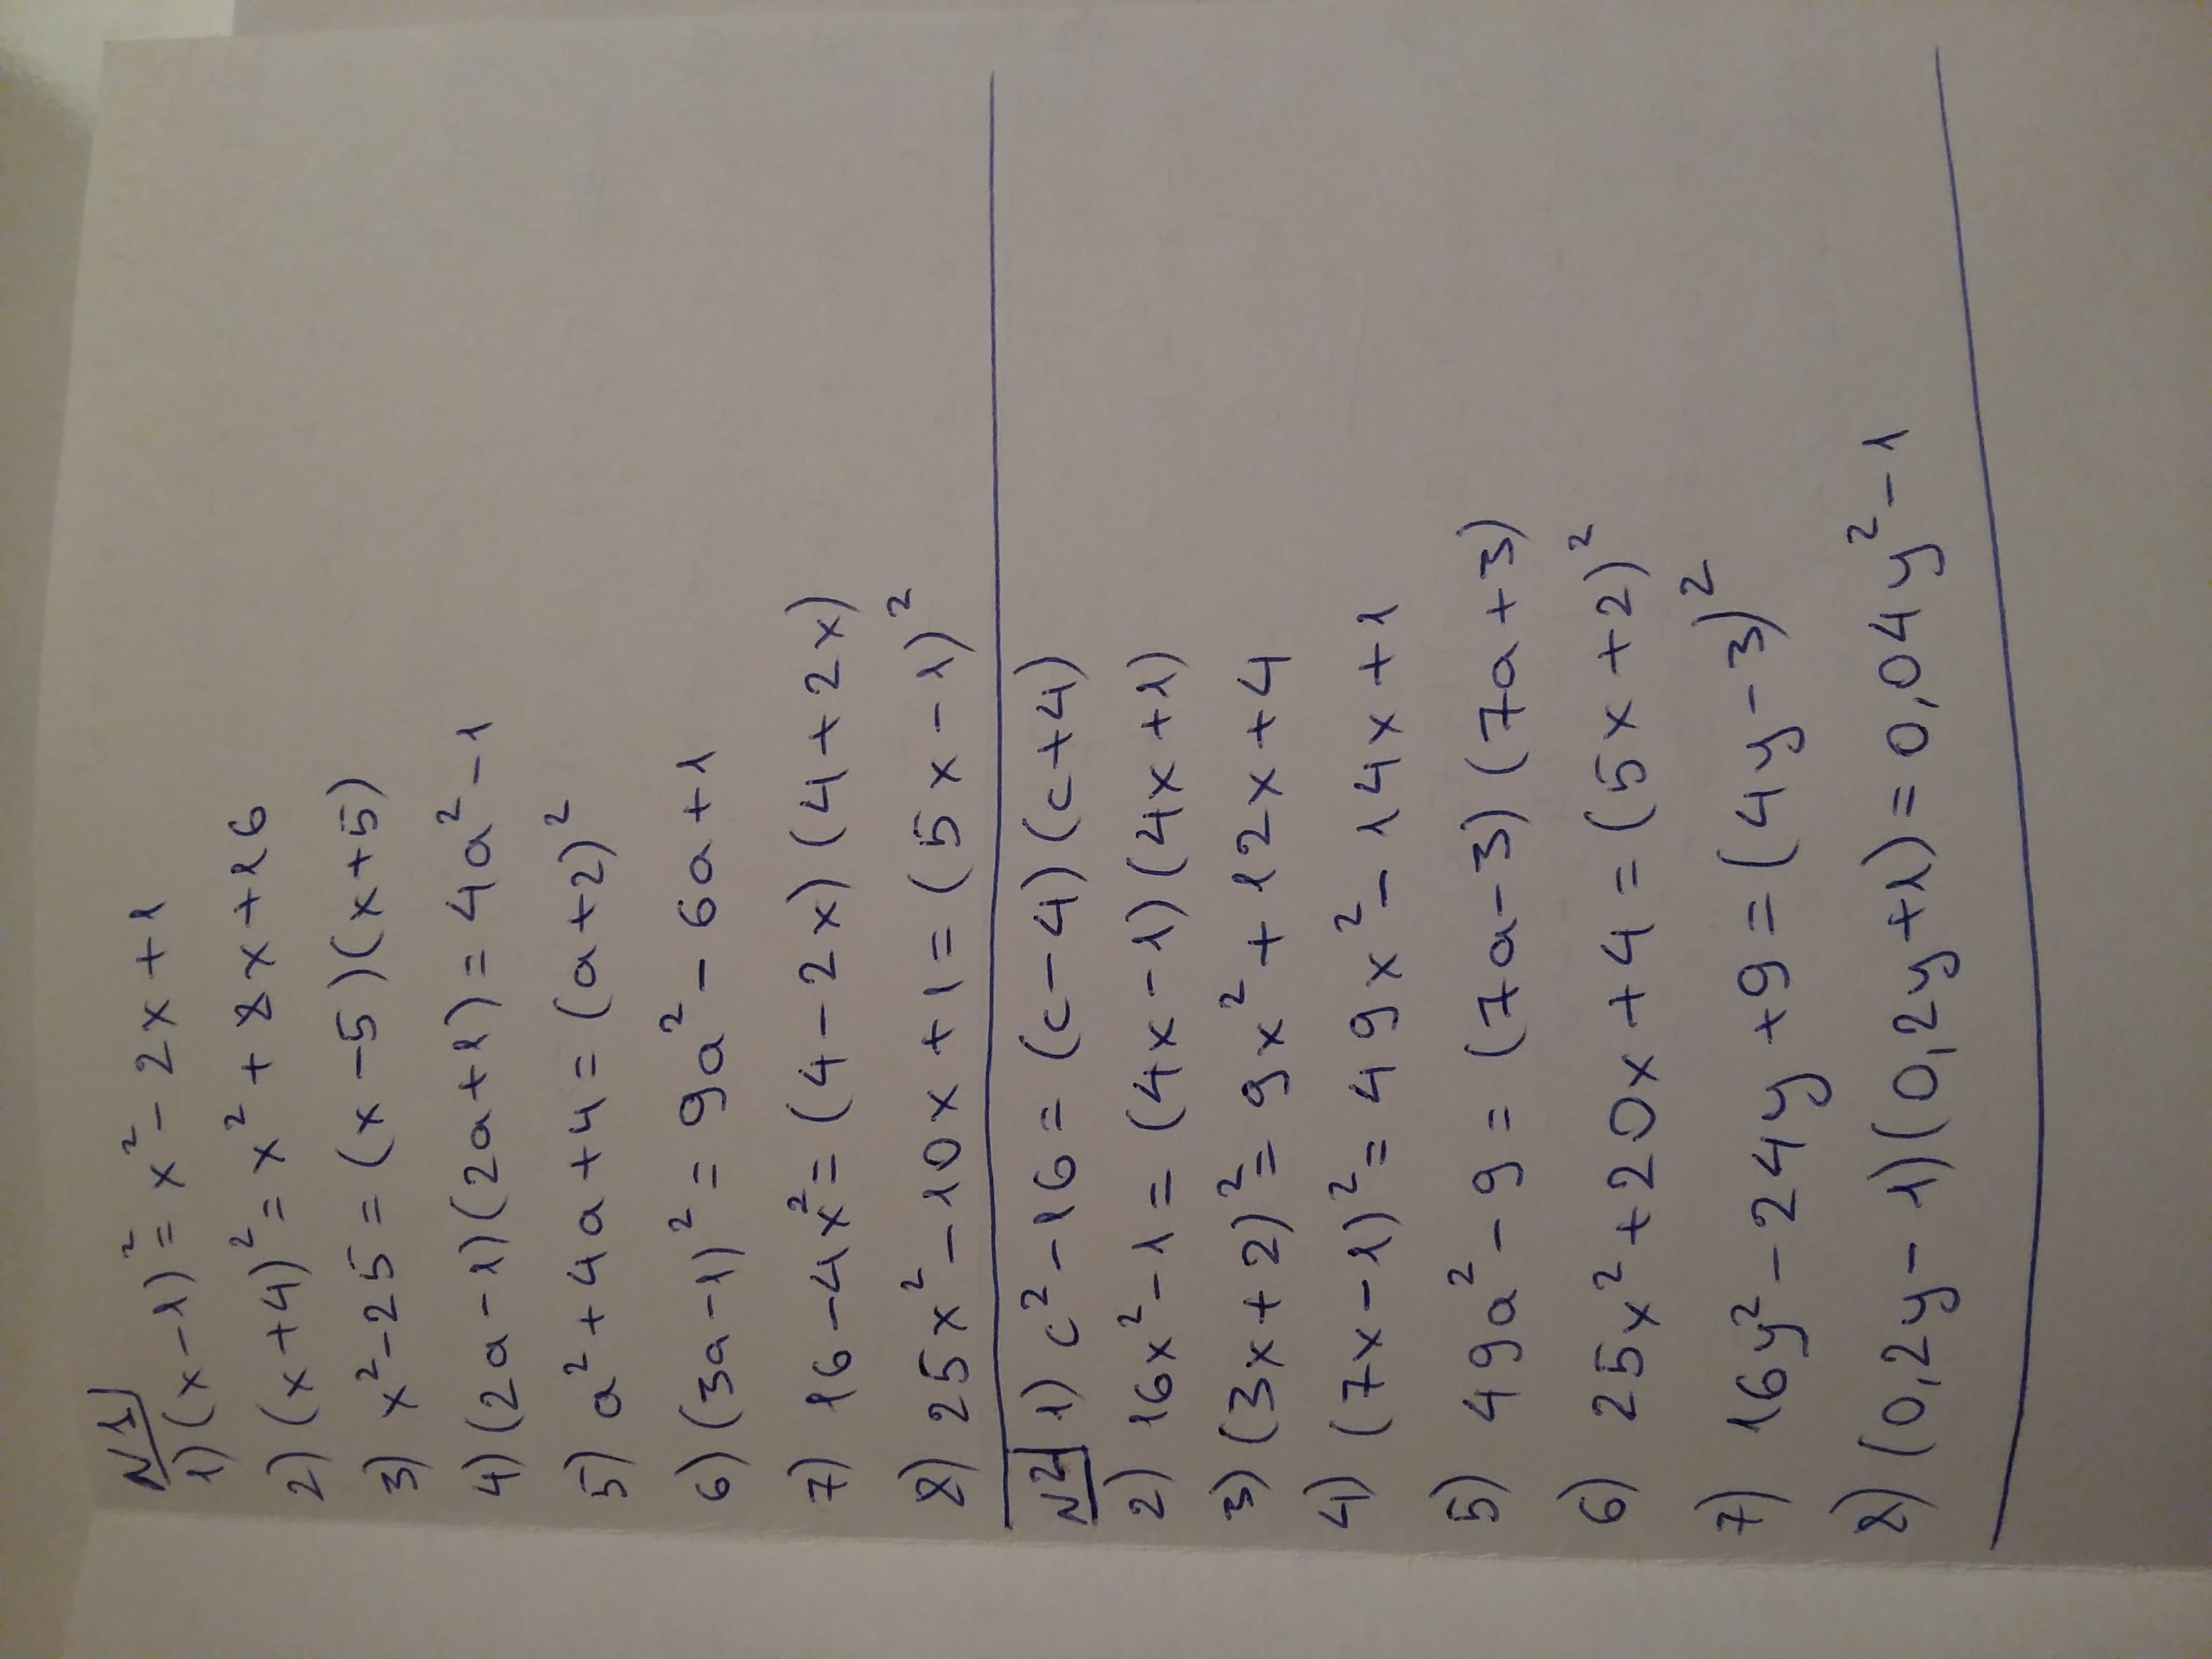 N1
1) (x-1)² = x² - 2x + 1
2) (x+4)² = x² + 8x + 16
3) x² - 25 = (x-5)(x+5)
4) (2a-1)(2a+1) = 4a² - 1
5) a² + 4a + 4 = (a+2)²
6) (3a-1)² = 9a² - 6a + 1
7) 16 - 4x² = (4-2x)(4+2x)
8) 25x² - 10x + 1 = (5x-1)²
N2 1) c² - 16 = (c-4)(c+4)
2) 16x² - 1 = (4x-1)(4x+1)
3) (3x+2)² = 9x² + 12x + 4
4) (7x-1)² = 49x² - 14x + 1
5) 49a² - 9 = (7a-3)(7a+3)
6) 25x² + 20x + 4 = (5x+2)²
7) 16y² - 24y + 9 = (4y-3)²
8) (0,2y-1)(0,2y+1) = 0,04y² - 1